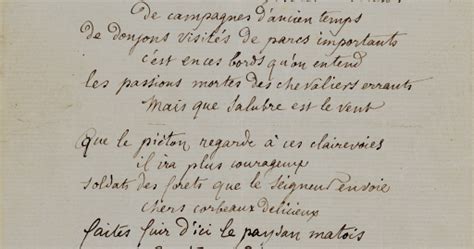 De campagnes d'ancien temps
de donjons visités de parcs importants
c'est en ces bords qu'on entend
les passions mortes des chevaliers errants
Mais que salubre est le vent
Que le piéton regarde à ces clairevoies
il ira plus courageux
soldats des forets que le Seigneur envoie
chers corbeaux delicieux
faites fuir d'ici le paysan matois